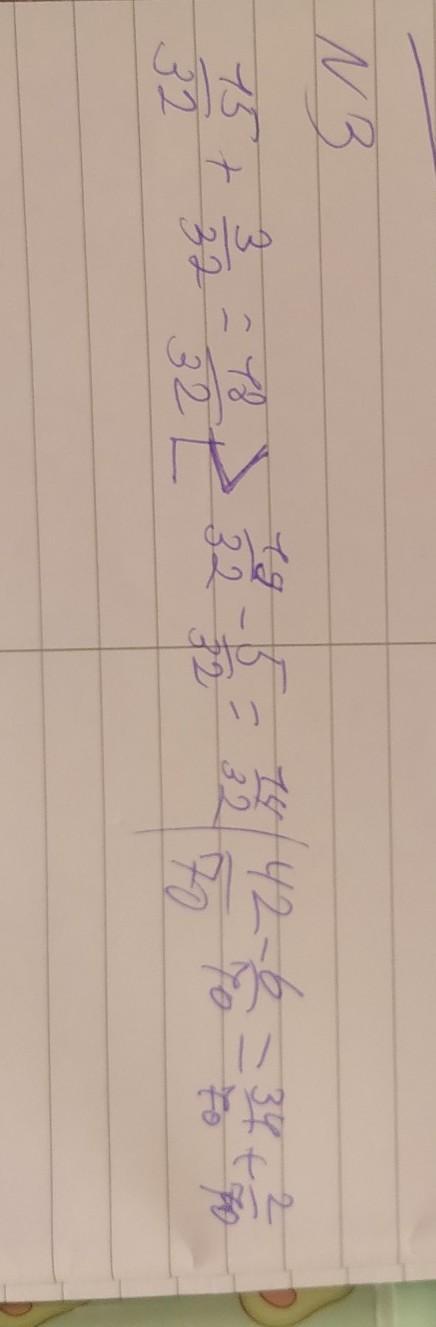 N 3
15/32 + 3/32 = 18/32 > 19/32 - 5/32 = 14/32 | 42/70 - 6/70 = 34/70 + 2/70